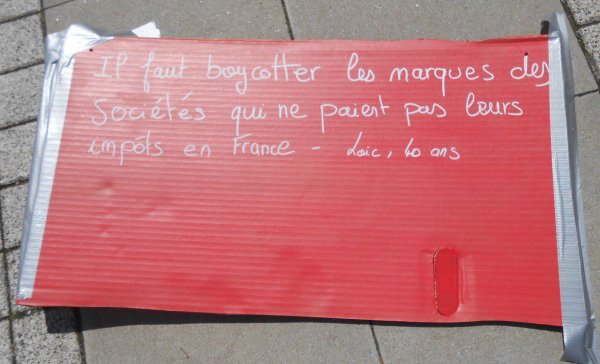 Il faut boycotter les marques des
sociétés qui ne paient pas leurs
impôts en France - Loïc, 40 ans